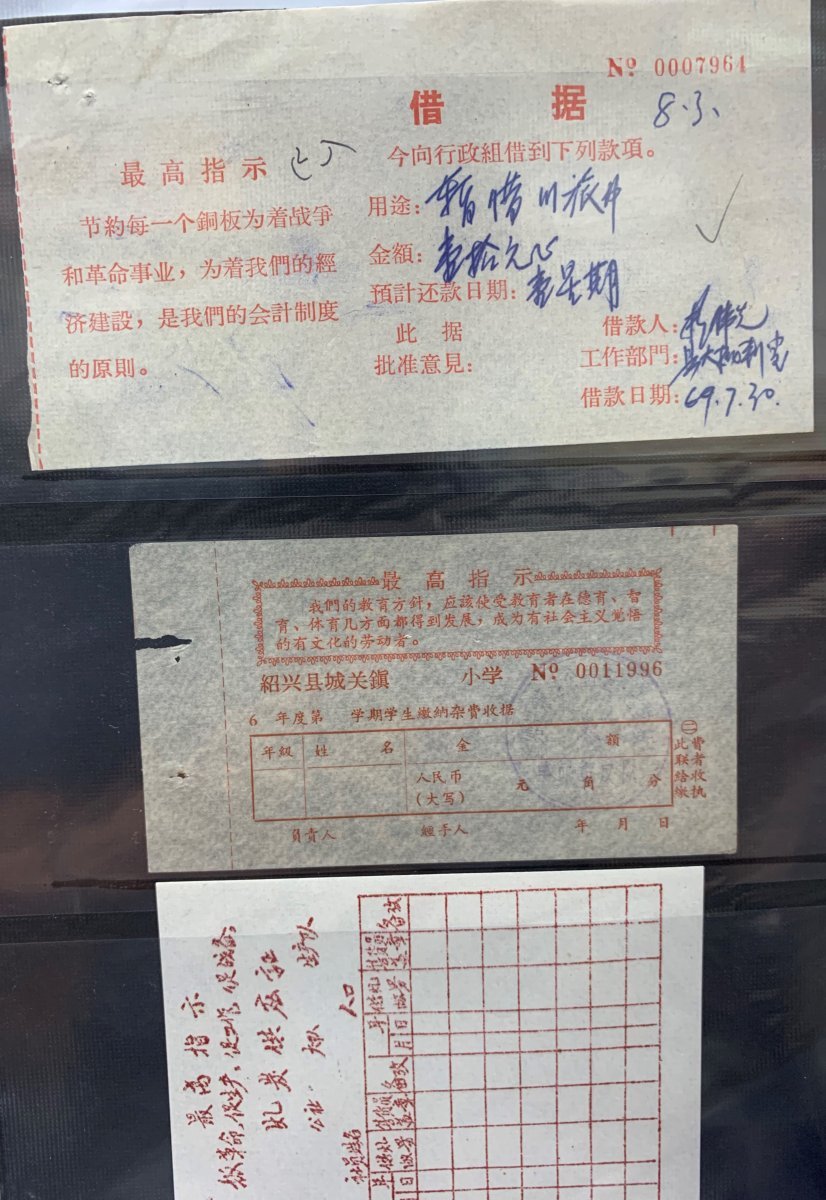 № 0007964
借 据
8.3.
最高指示
节約每一个銅板为着战爭
和革命事业，为着我們的經
济建設，是我們的会計制度
的原則。
今向行政組借到下列款項。
用途：暫借川旅弗
金額：壹拾元
預計还款日期：壹星期
此据
批准意見：
借款人：
工作部門：
借款日期：69.7.30.
最高指示
我們的教育方針，应該使受教育者在德育、智
育、体育几方面都得到发展，成为有社会主义觉悟
的有文化的劳动者。
紹兴县城关鎭 小学 № 0011996
6 年度第 学期学生繳納杂費收据
年級 姓 名 金 額
人民币
（大写） 元 角 分
負責人 經手人 年 月 日
㊁此联給繳
費者收执
最高指示
抓革命，促生产，促工作，促战备。
化炭供应証
公社 大队 生产队
社員姓名 人口